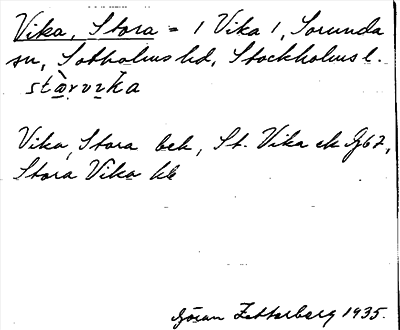 Vika, Stora = 1 Vika 1, Sorunda
sn, Sotholms hd, Stockholms l.
stòrvika
Vika, Stora bek, St. Vika ek Jj67,
Stora Vika kb
Göran Zetterberg 1935.